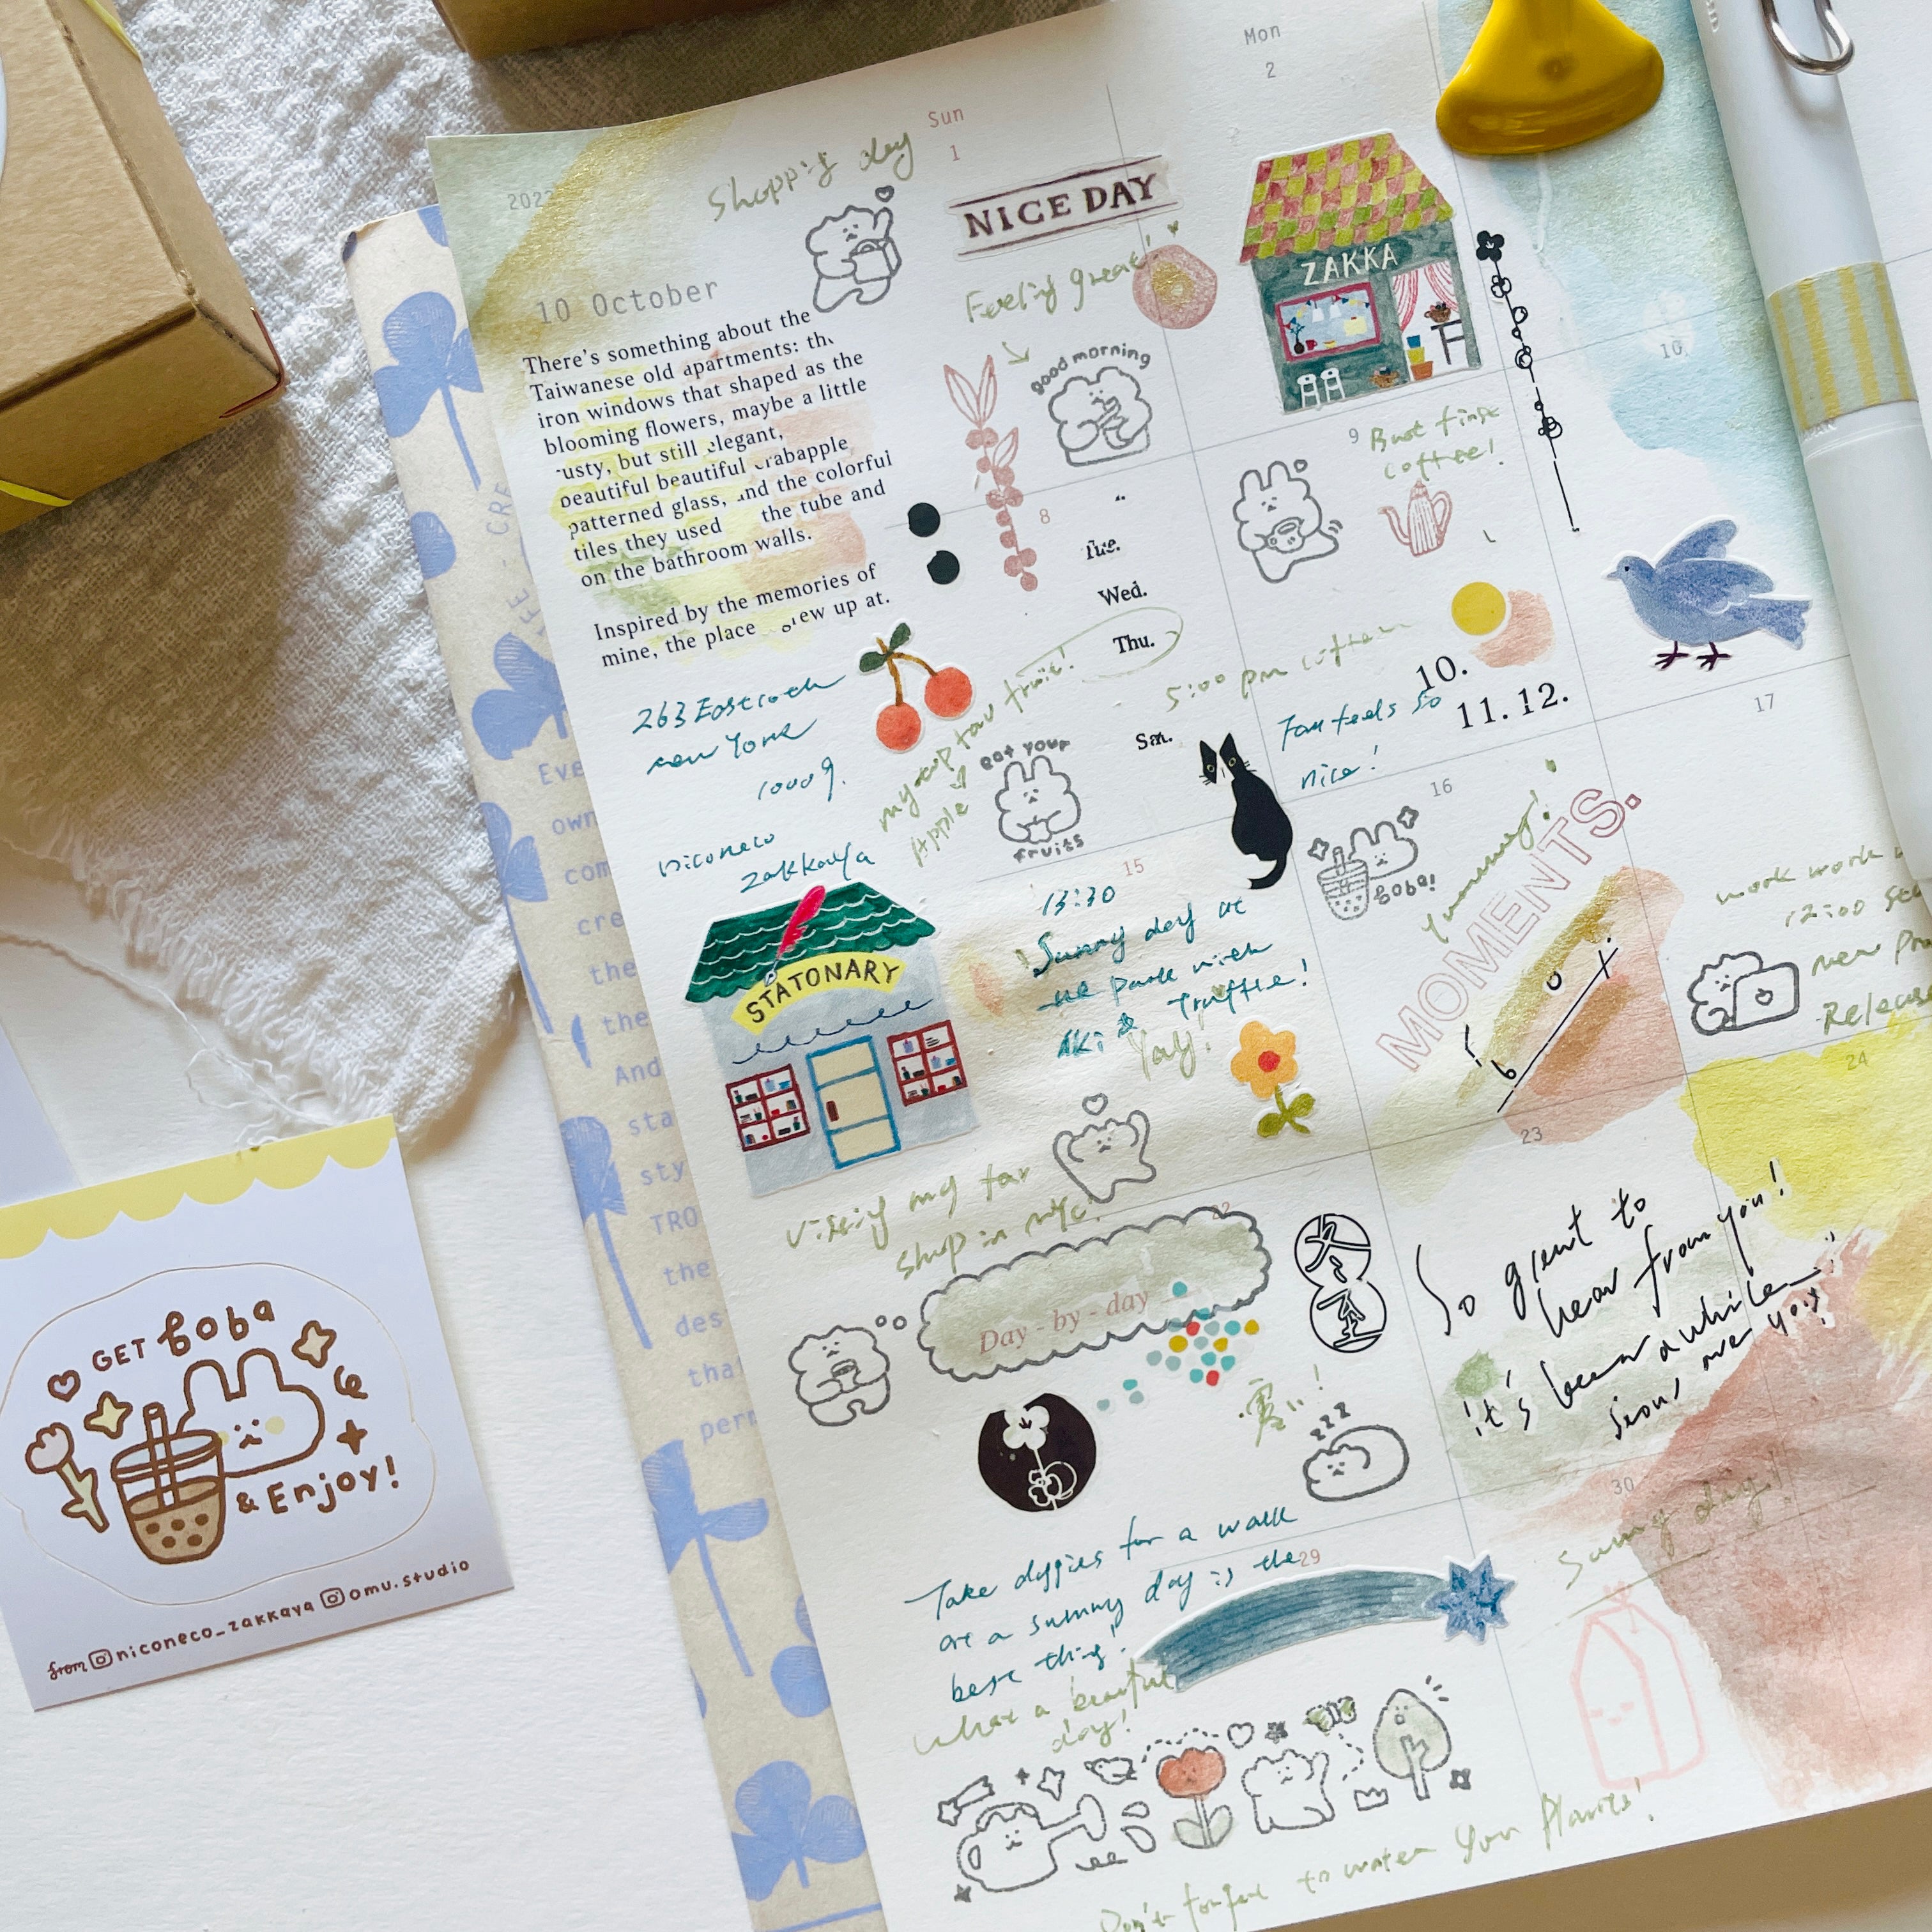 Mon
2
Sun
1
Shopping day
NICE DAY
10 October
ZAKKA
Feeling great!
There's something about the
Taiwanese old apartments: the
iron windows that shaped as the
blooming flowers, maybe a little
usty, but still elegant,
beautiful beautiful crabapple
patterned glass, and the colorful
tiles they used the tube and
on the bathroom walls.
Inspired by the memories of
mine, the place grew up at.
good morning
10
8
9
coffee!
Tue.
Wed.
Thu.
Sat.
5:00 pm coffee
10.
11. 12.
feels so
nice!
263 East 10th
new York
10009.
niconeco
zakkaya
my top fav fruit!
Apple
eat your
fruits
STATONARY
15
13:30
Sunny day at
the park with
Aki & Truffle!
Yay!
16
boba!
Yummy!
MOMENTS.
17
work work
12:00
new
Release
24
Visiting my fav
shop in nyc!
22
Day - by - day
冬至
23
So great to
hear from you!
it's been a while
zzz
Take doggies for a walk
on a sunny day is the
best thing!
29
What a beautiful
day!
30
Sunny day!
Don't forget to water your plants!
Eve
own
com
cre
the
the
And
sta
sty
TRO
the
des
tha
per
GET boba
& Enjoy!
from niconeco_zakkaya omu.studio